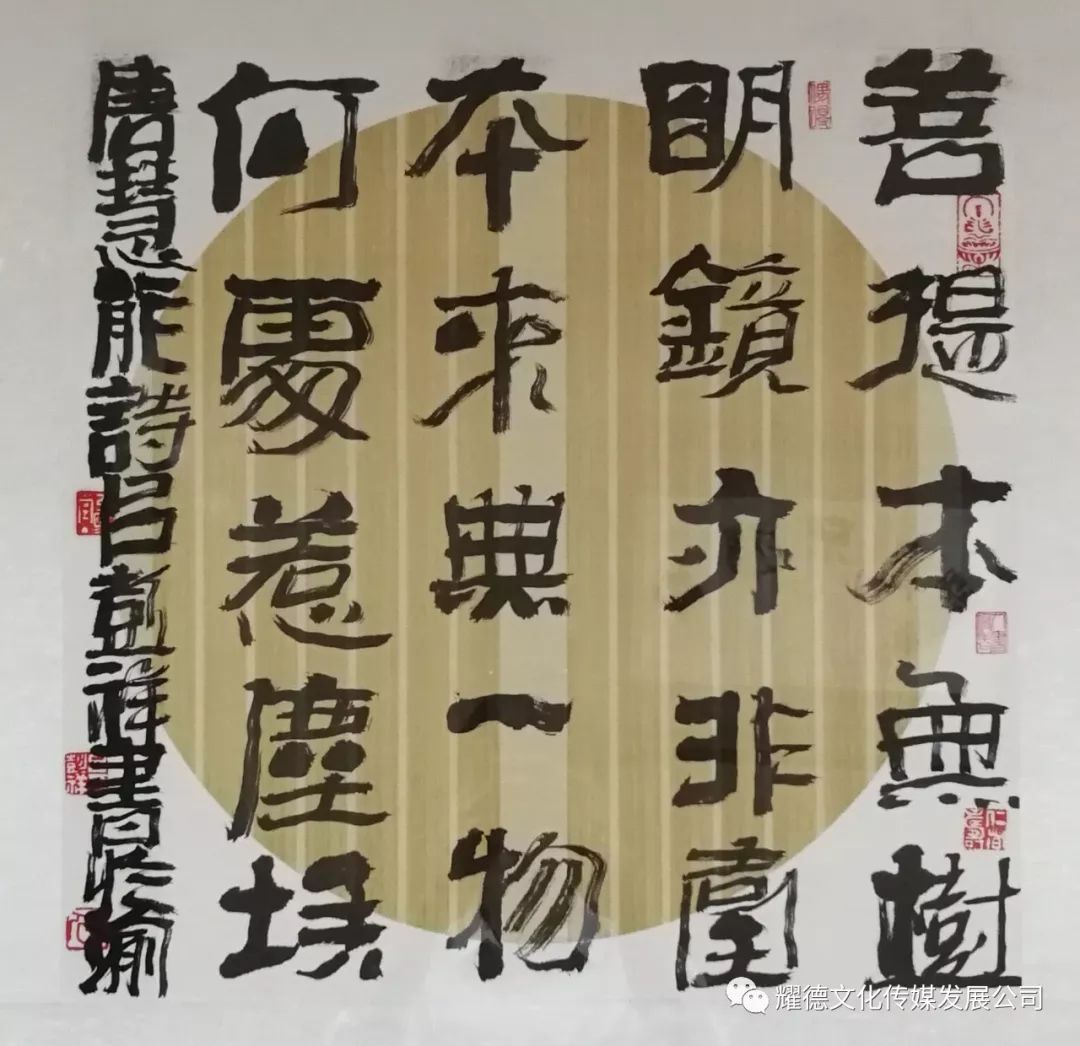 菩提本無樹
明鏡亦非臺
本來無一物
何處惹塵埃
唐慧能詩句彭祥書於渝
仁者壽
彭祥
耀德文化传媒发展公司